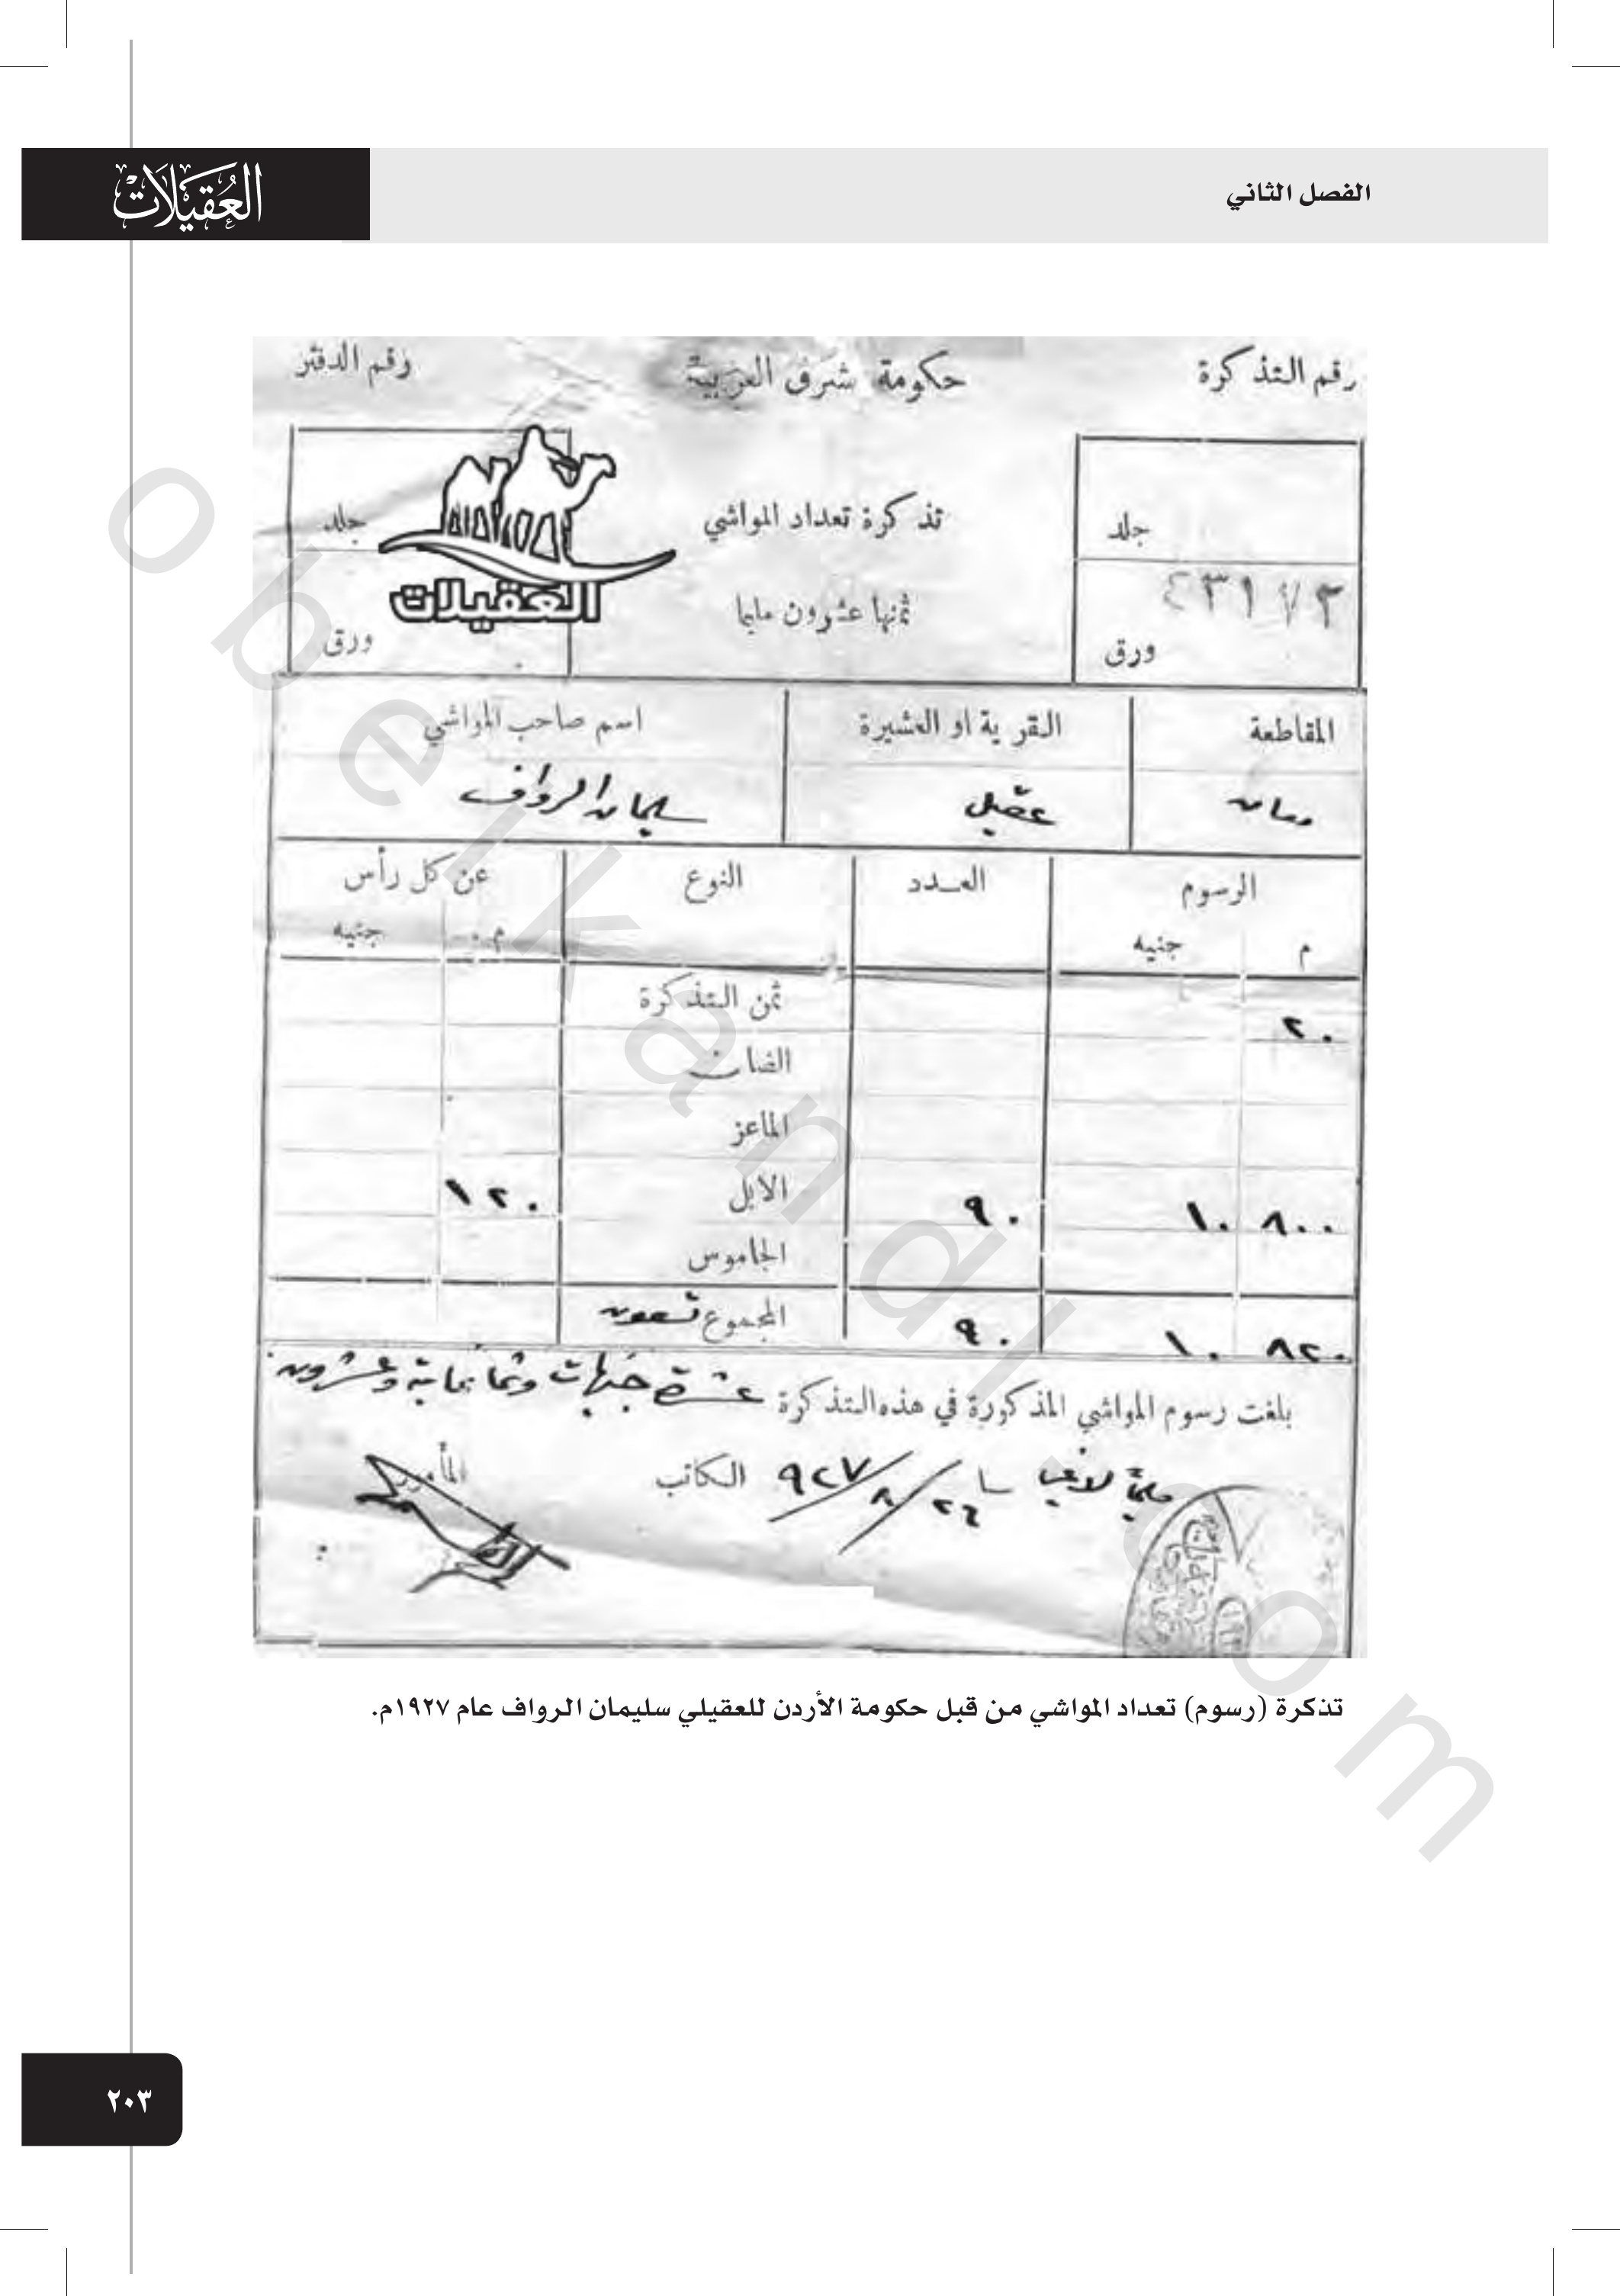 الفصل الثاني
العُقَيلَات
رقم التذكرة
حكومة شرق العربية
رقم الدفتر
جلد
تذكرة تعداد المواشي
جلد
٤٣١٧٣
ثمنها عشرون مليما
العقيلات
ورق
ورق
المقاطعة
القرية او العشيرة
اسم صاحب المواشي
معان
عقيل
سليمان الرواف
الرسوم
العدد
النوع
عن كل رأس
م
جنيه
م.
جنيه
٢٠
ثمن التذكرة
الضان
الماعز
٨٠٠
١٠
٩٠
الابل
١٢٠
الجاموس
٨٢٠
١٠
٩٠
المجموع تسعون
بلغت رسوم المواشي المذكورة في هذه التذكرة عشرة جنيهات وثمانماية وعشرون
مليما لاغير
٢٦/٨/٩٢٧
الكاتب
المأمور
تذكرة (رسوم) تعداد المواشي من قبل حكومة الأردن للعقيلي سليمان الرواف عام ١٩٢٧م.
٢٠٣
obeikandl.com